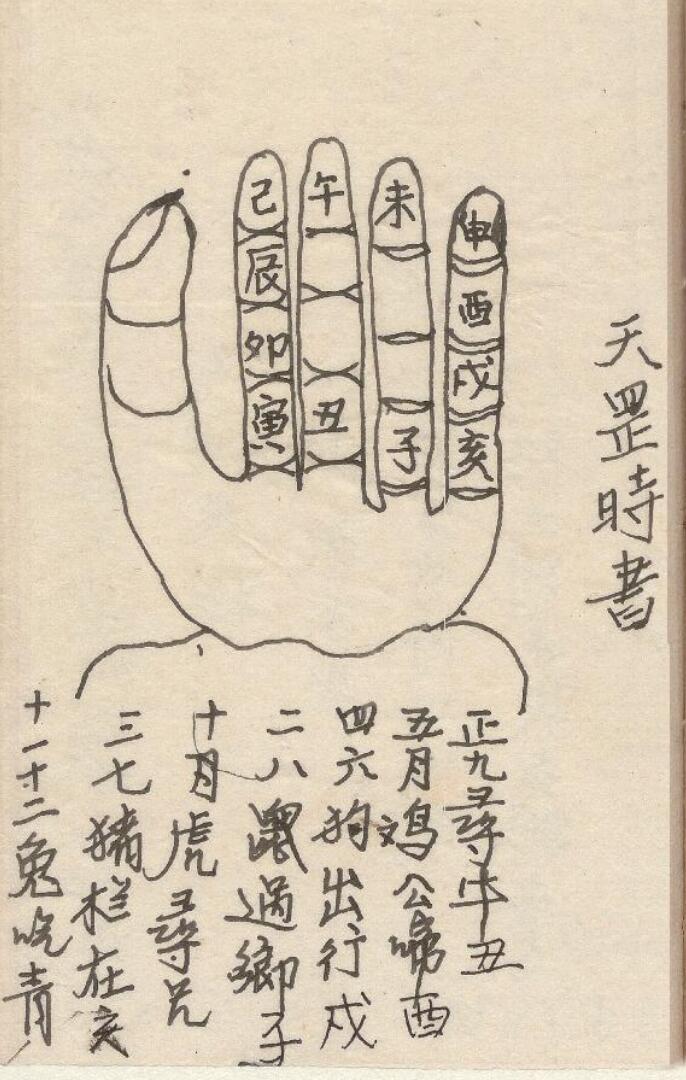 天罡時書
己 午 未 申
辰 酉
卯 戌
寅 丑 子 亥
正九尋牛丑
五月鸡公啼酉
四六狗出行戌
二八鼠過鄉子
十月虎尋兄
三七猪栏在亥
十一十二兔吃青